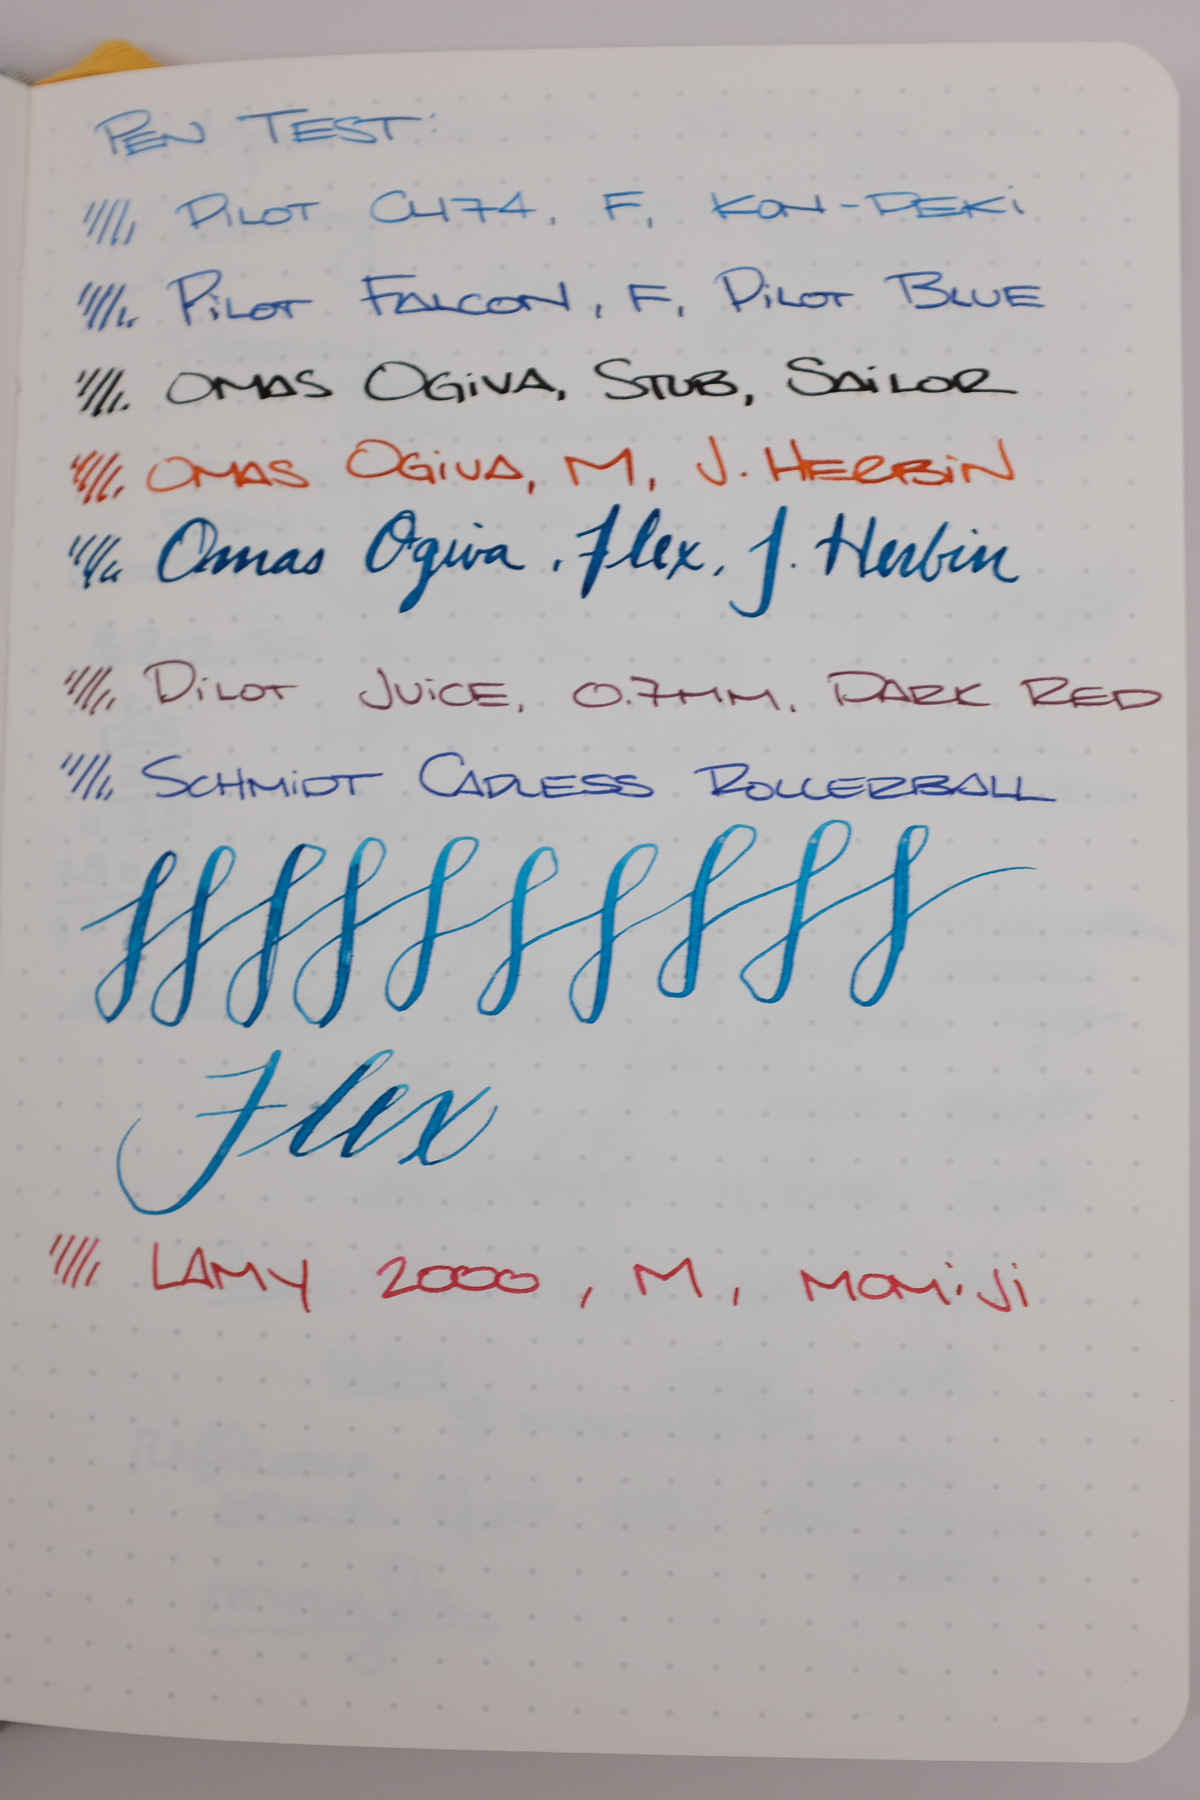 PEN TEST:
PILOT CH74, F, KON-PEKI
PILOT FALCON, F, PILOT BLUE
OMAS OGIVA, STUB, SAILOR
OMAS OGIVA, M, J. HERBIN
Omas Ogiva, Flex, J. Herbin
PILOT JUICE, 0.7MM, DARK RED
SCHMIDT CAPLESS ROLLERBALL
Flex
LAMY 2000, M, MOMIJI